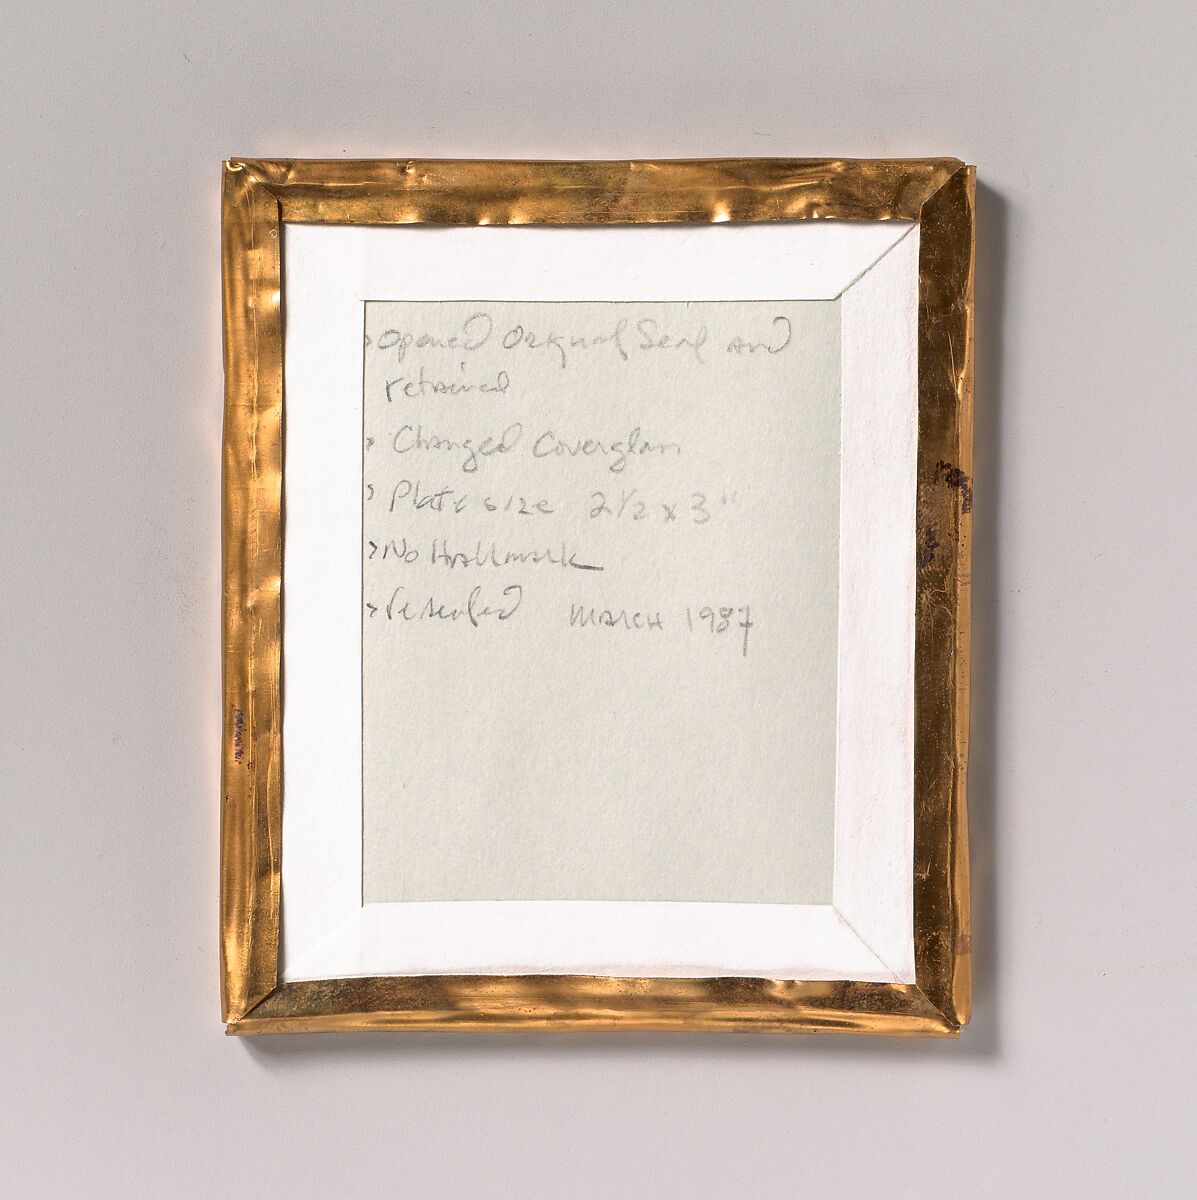 > Opened Original Seal and
retained
> Changed Coverglass
> Plate size 2 1/2 x 3"
> No Hallmark
> resealed March 1987